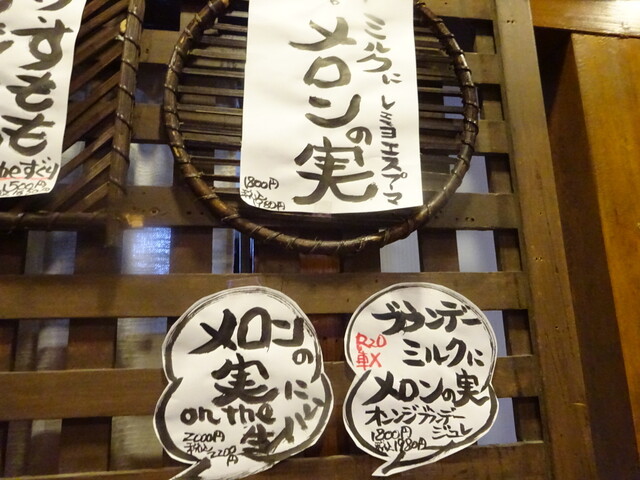 ミルクに
レミヨエスプーマ
メロンの実
1800円
税込1980円
すもも
すぐり
1,500円
メロンの
実
on the
生ハムに
2000円
税込2200円
ブランデー
ミルクに
メロンの実
オンジブランデー
ジュレ
1800円
税込1980円
R20
車X